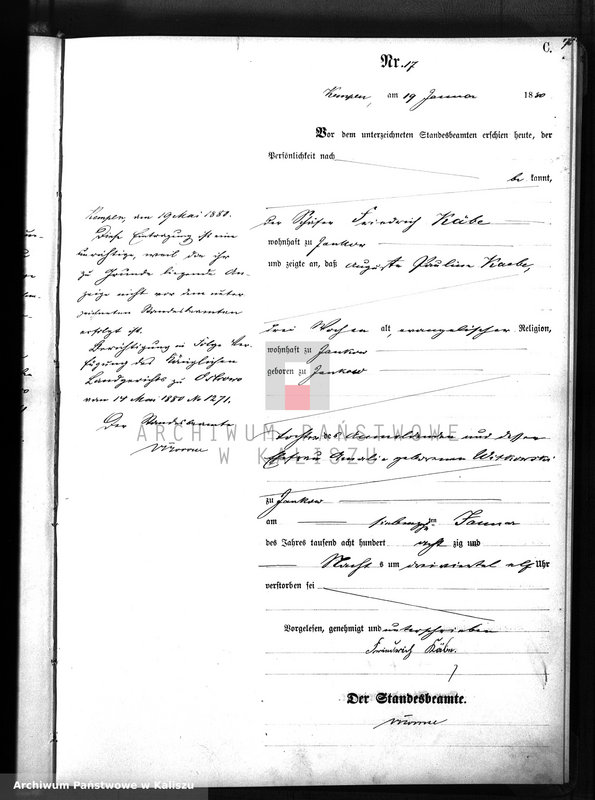 C.
Nr. 17
Kempen, am 19 Januar 1880
Vor dem unterzeichneten Standesbeamten erschien heute, der
Persönlichkeit nach
be kannt,
der Schäfer Friedrich Käbe
wohnhaft zu Jankow
und zeigte an, daß Auguste Pauline Kaebe,
drei Wochen alt, evangelischer Religion,
wohnhaft zu Jankow
geboren zu Jankow
Tochter des Anmeldenden und dessen
Ehefrau Amalie geborenen Witkowski
zu Jankow
am siebenzehnten Januar
des Jahres tausend acht hundert acht zig und
Nacht s um dreiviertel elf Uhr
verstorben sei
Vorgelesen, genehmigt und unterschrieben
Friedrich Käbe.
Der Standesbeamte.
Kempen, am 19 Mai 1880.
Diese Eintragung ist eine
unrichtige, weil die ihr
zu Grunde liegende An-
zeige nicht vor dem unter
zeichneten Standesbeamten
erfolgt ist.
Berichtigung in Folge Ver-
fügung des Königlichen
Landgerichts zu Ostrowo
vom 14 Mai 1880 No 1271.
Der Standesbeamte
ARCHIWUM PAŃSTWOWE
W KALISZU
Archiwum Państwowe w Kaliszu